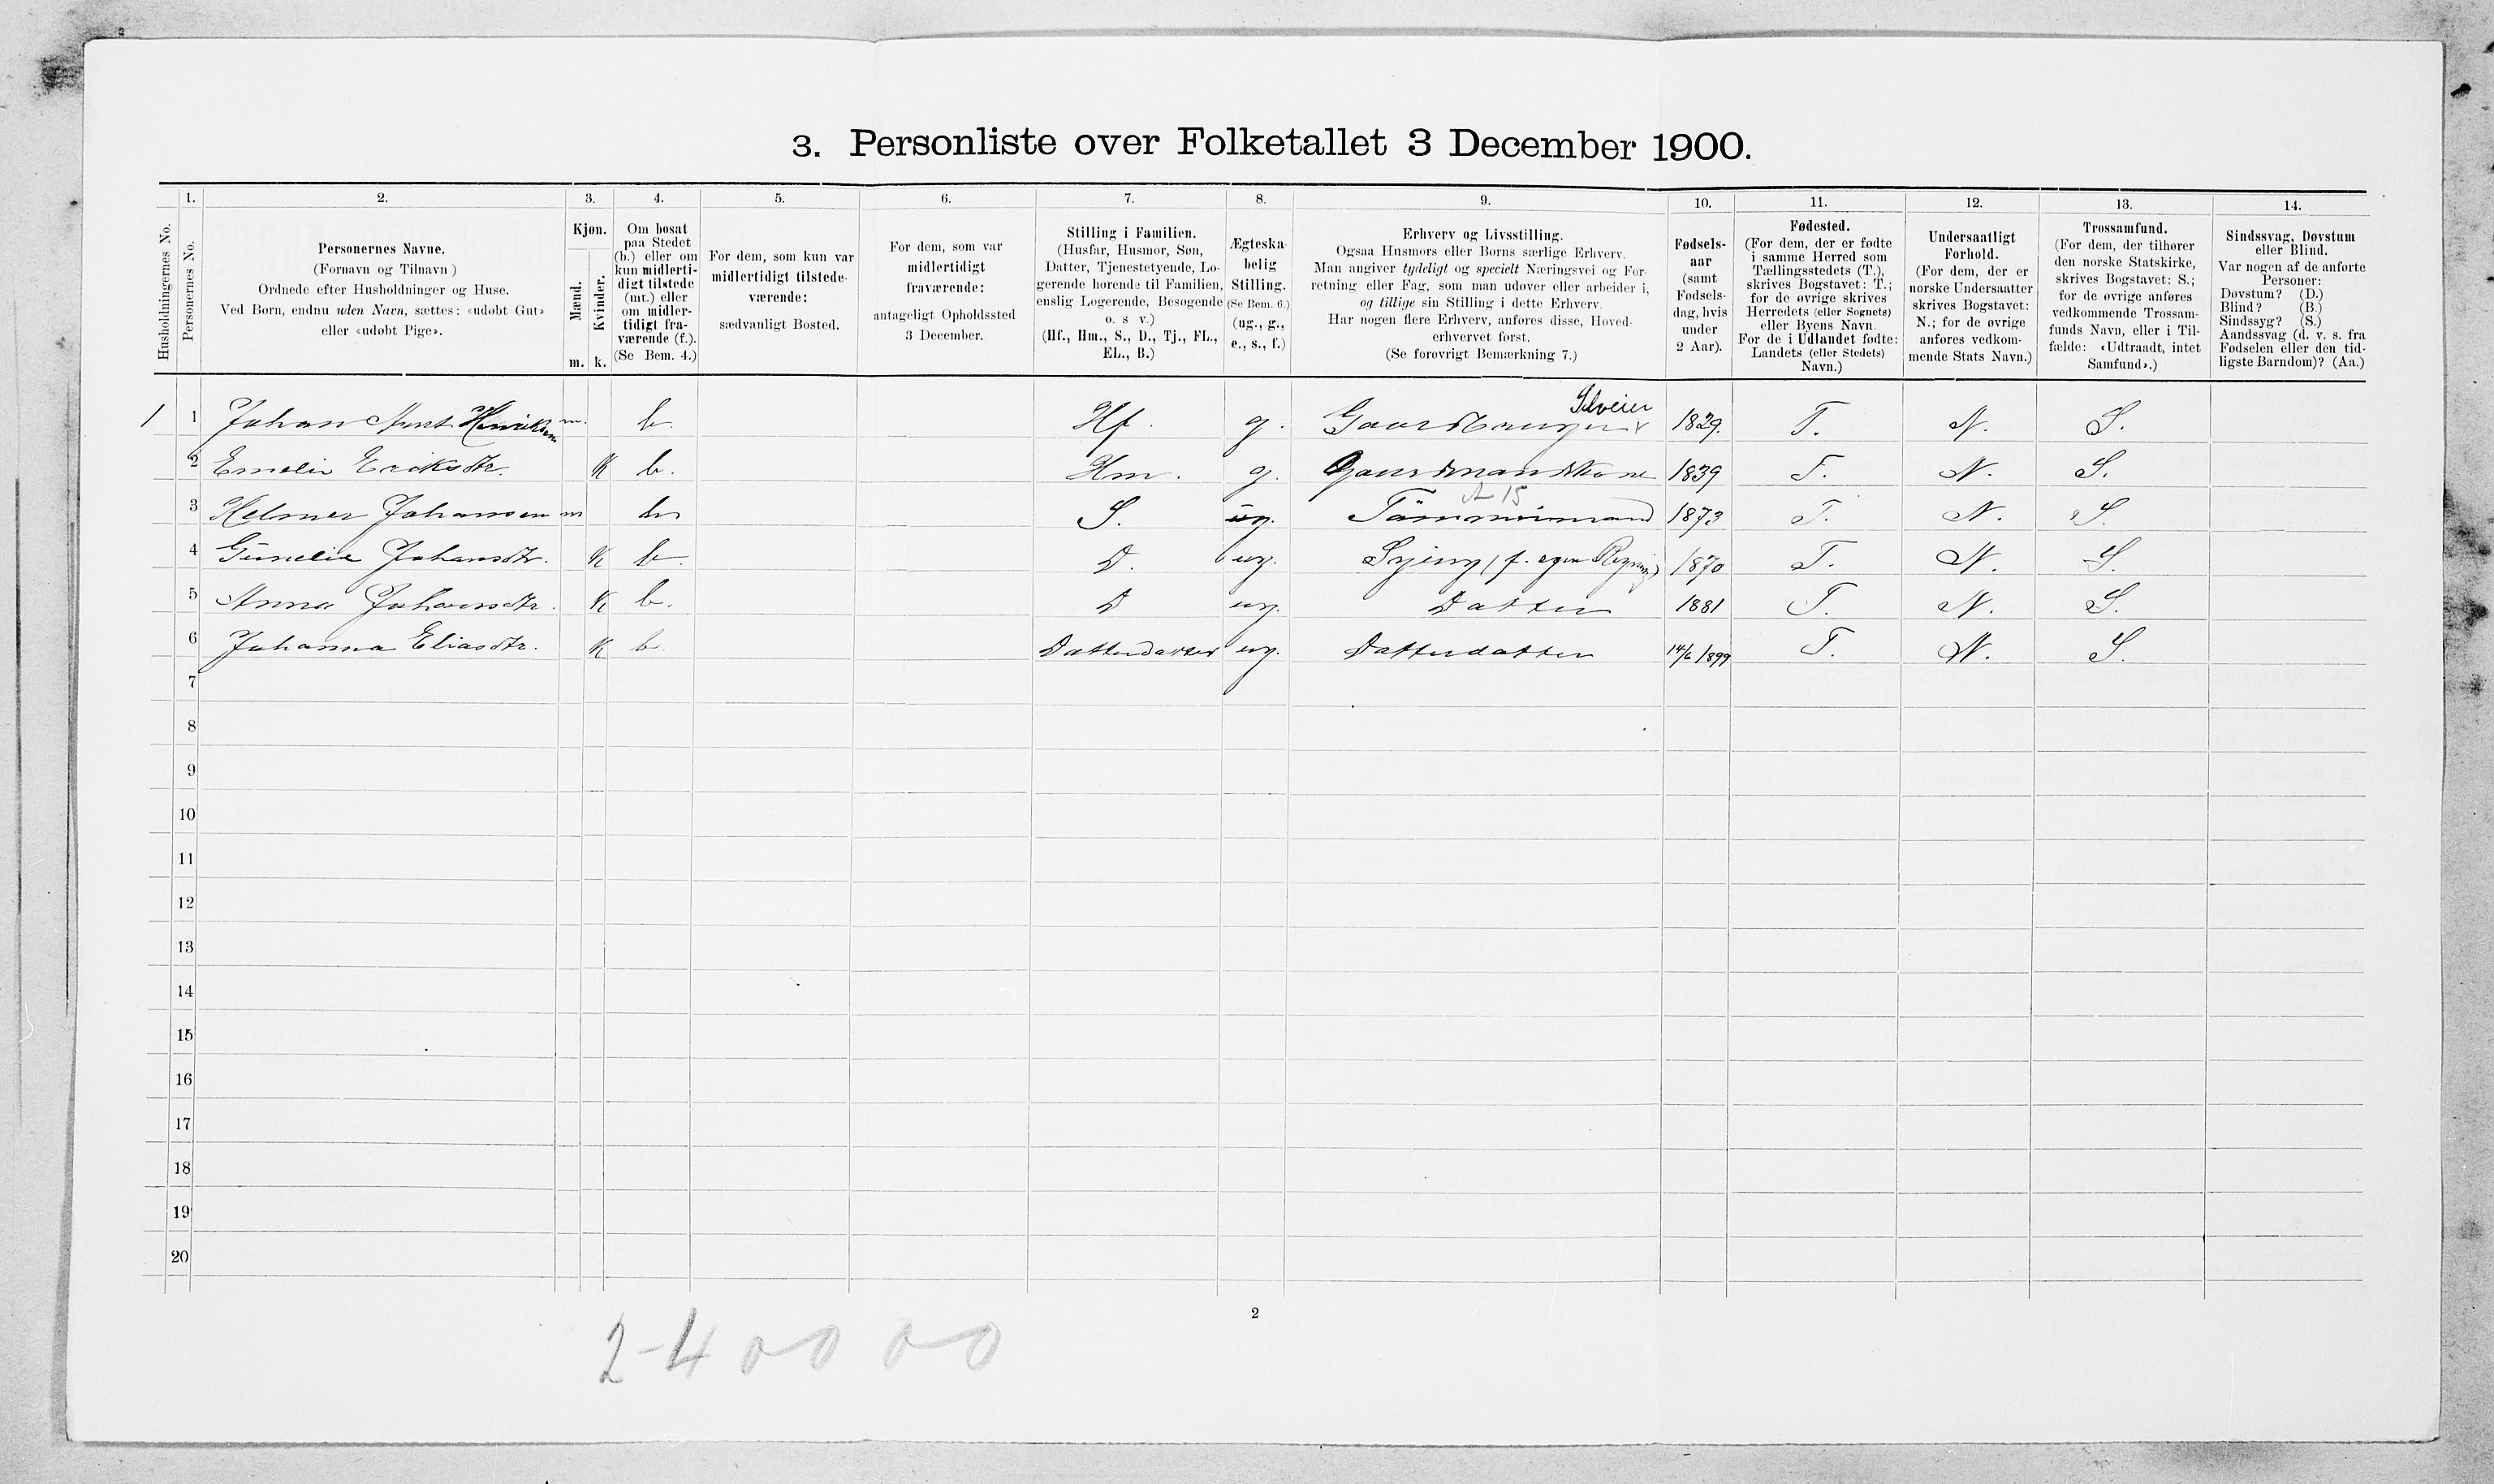 3. Personliste over Folketallet 3 December 1900.
Husholdningernes No.
1. Personernes No.
2. Personernes Navne.
(Fornavn og Tilnavn)
Ordnede efter Husholdninger og Huse.
Ved Børn, endnu uden Navn, sættes: «udøbt Gut»
eller «udøbt Pige».
3. Kjøn.
Mænd. m.
Kvinder. k.
4. Om bosat
paa Stedet
(b.) eller om
kun midlerti-
digt tilstede
(mt.) eller
om midler-
tidigt fra-
værende (f.).
(Se Bem. 4.)
5. For dem, som kun var
midlertidigt tilstede-
værende:
sædvanligt Bosted.
6. For dem, som var
midlertidigt
fraværende:
antageligt Opholdssted
3 December.
7. Stilling i Familien.
(Husfar, Husmor, Søn,
Datter, Tjenestetyende, Lo-
gerende hørende til Familien,
enslig Logerende, Besøgende
o. s v.)
(Hf., Hm., S., D., Tj., FL.,
EL., B.)
8. Ægteska-
belig
Stilling.
(Se Bem. 6.)
(ug., g.,
e., s., f.)
9. Erhverv og Livsstilling.
Ogsaa Husmors eller Børns særlige Erhverv.
Man angiver tydeligt og specielt Næringsvei og For-
retning eller Fag, som man udøver eller arbeider i,
og tillige sin Stilling i dette Erhverv.
Har nogen flere Erhverv, anføres disse, Hoved-
erhvervet først.
(Se forøvrigt Bemærkning 7.)
10. Fødsels-
aar
(samt
Fødsels-
dag, hvis
under
2 Aar).
11. Fødested.
(For dem, der er fødte
i samme Herred som
Tællingsstedets (T.),
skrives Bogstavet: T.;
for de øvrige skrives
Herredets (eller Sognets)
eller Byens Navn.
For de i Udlandet fødte:
Landets (eller Stedets)
Navn.)
12. Undersaatligt
Forhold.
(For dem, der er
norske Undersaatter
skrives Bogstavet:
N.; for de øvrige
anføres vedkom-
mende Stats Navn.)
13. Trossamfund.
(For dem, der tilhører
den norske Statskirke,
skrives Bogstavet: S.;
for de øvrige anføres
vedkommende Trossam-
funds Navn, eller i Til-
fælde: «Udtraadt, intet
Samfund».)
14. Sindssvag, Døvstum
eller Blind.
Var nogen af de anførte
Personer:
Døvstum? (D.)
Blind? (B.)
Sindssyg? (S.)
Aandssvag (d. v. s. fra
Fødselen eller den tid-
ligste Barndom)? (Aa.)
Selveier
1 1 Johan Arnt Henriksen m. b. Hf. g. Gaardbruger 1829. T. N. S.
2 Emelie Eriksdtr. K b. Hm. g. Gaardmandskone 1839 T. N. S.
15
3 Helmer Johansen m b S. ug. Tömmermand 1873 T. N. S.
4 Gunelie Johansdtr. K b. D. ug. Sying (f. egen Regning) 1870 T. N. S.
5 Anna Johansdtr. K b. D ug. Datter 1881 T. N. S.
6 Johanna Eliasdtr. K b. Datterdatter ug. Datterdatter 14/6 1899 T. N. S.
7
8
9
10
11
12
13
14
15
16
17
18
19
20
2
2-4 00 00